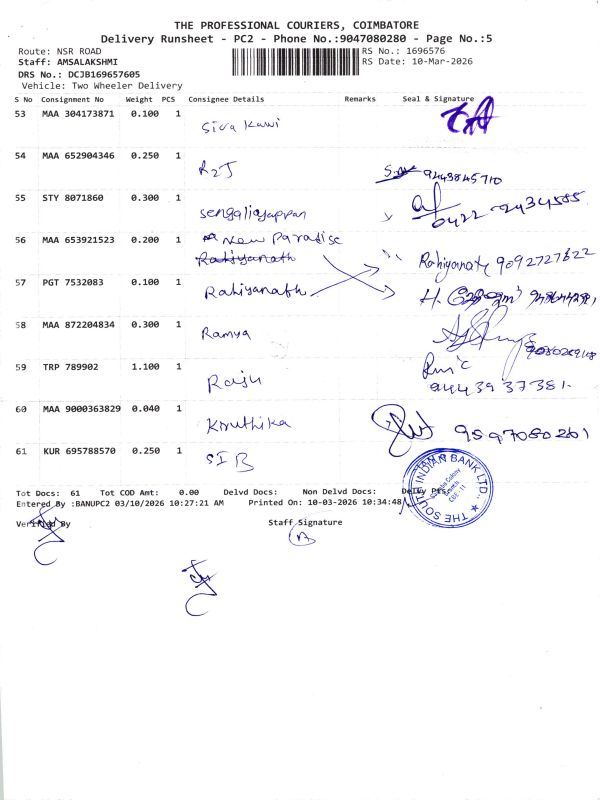 THE PROFESSIONAL COURIERS, COIMBATORE
Delivery Runsheet - PC2 - Phone No.:9047080280 - Page No.:5
Route: NSR ROAD RS No.: 1696576
Staff: AMSALAKSHMI RS Date: 10-Mar-2026
DRS No.: DCJB169657605
Vehicle: Two Wheeler Delivery
S No Consignment No Weight PCS Consignee Details Remarks Seal & Signature
53 MAA 304173871 0.100 1 Siva Kavi
54 MAA 652904346 0.250 1 R2J 9243845710
55 STY 8071860 0.300 1 Sengaliayappan 0422-2434585
56 MAA 653921523 0.200 1 New Paradise
Rahiyanath Rahiyanath 9092727622
57 PGT 7532083 0.100 1 Rahiyanath H.
58 MAA 872204834 0.300 1 Ramya
59 TRP 789902 1.100 1 Raju 9444393 7381
60 MAA 9000363829 0.040 1 Kiruthika 9597080261
61 KUR 695788570 0.250 1 SIB
THE SOUTH INDIAN BANK LTD.
Tot Docs: 61 Tot COD Amt: 0.00 Delvd Docs: Non Delvd Docs: Delvy Pts:
Entered By :BANUPC2 03/10/2026 10:27:21 AM Printed On: 10-03-2026 10:34:48
Verified By Staff Signature